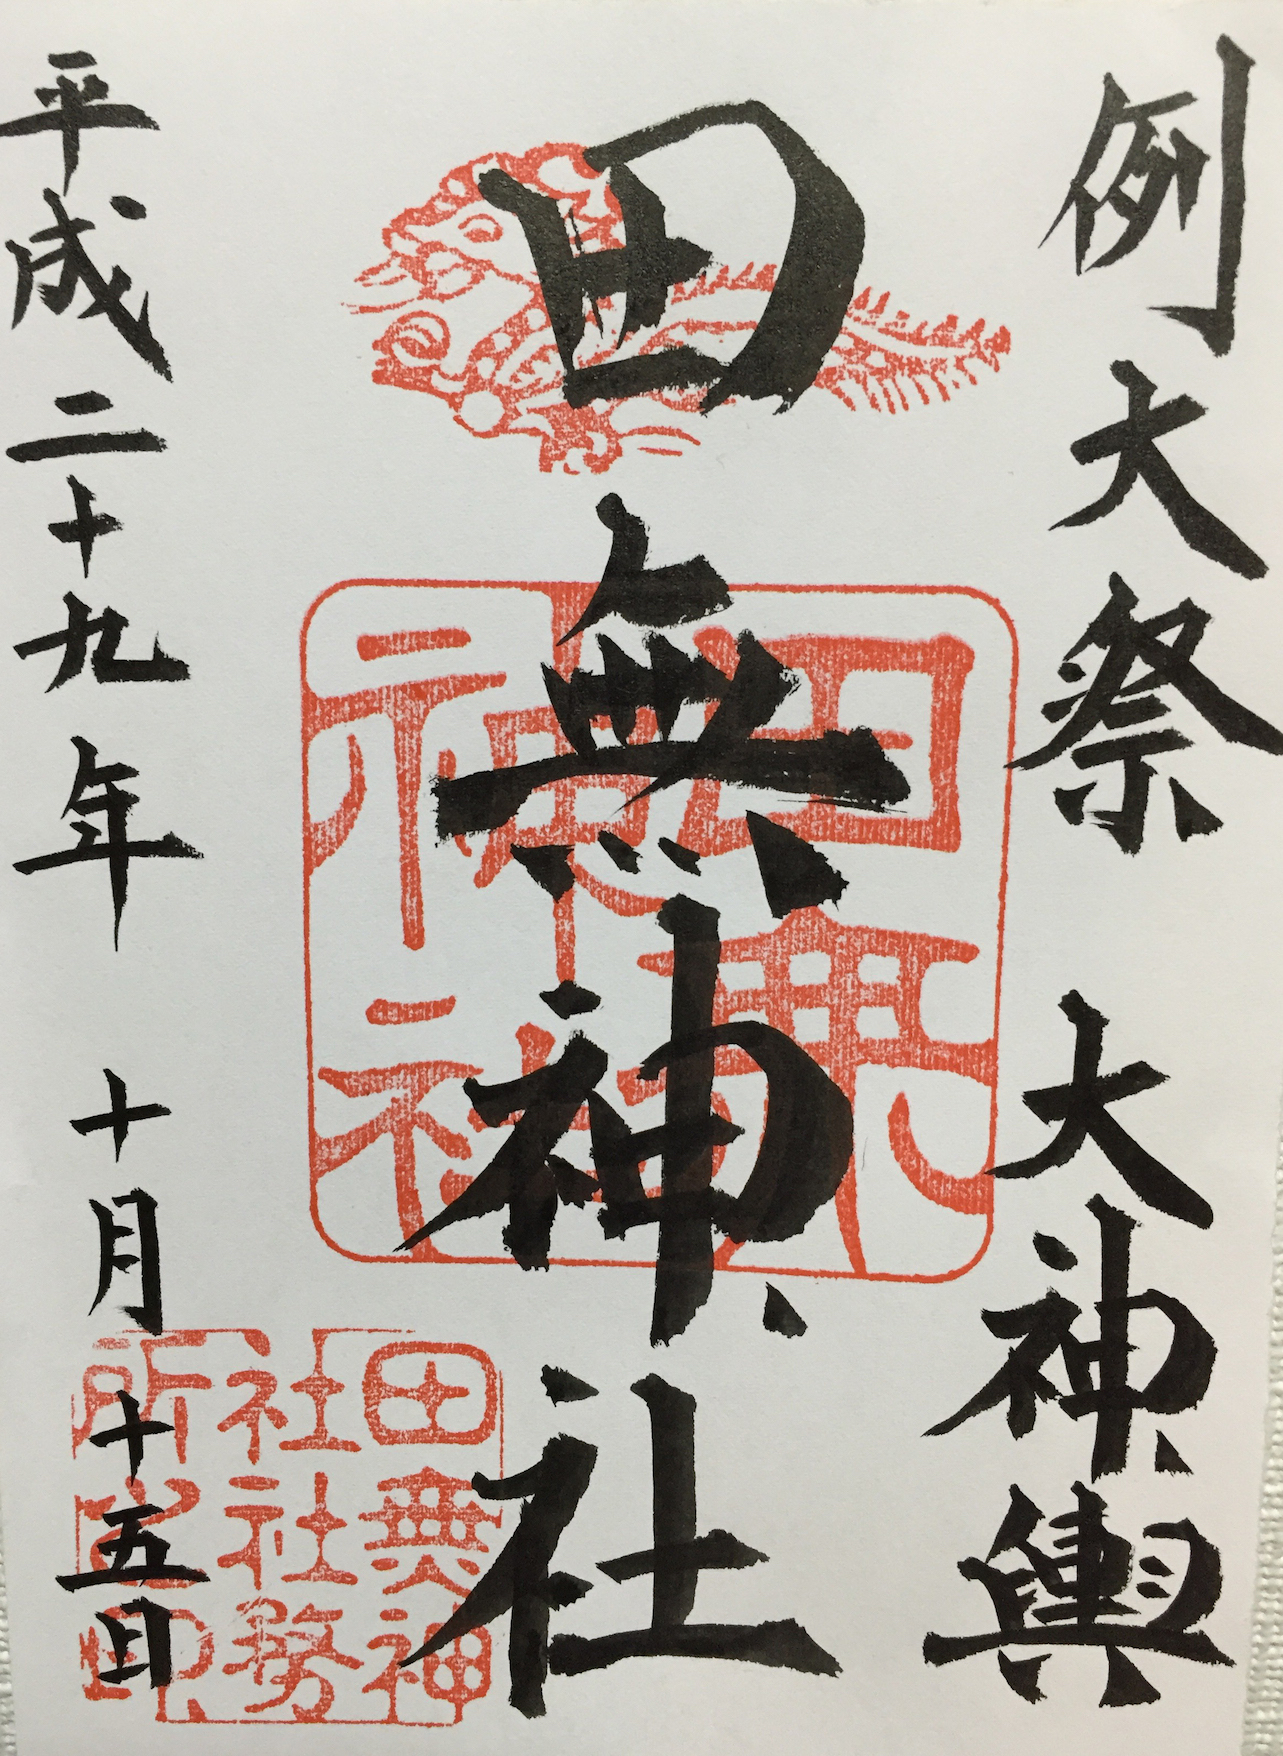 例大祭 大神輿
田無神社
平成二十九年 十月十五日
田無
神社
田無神
社社務
所之印